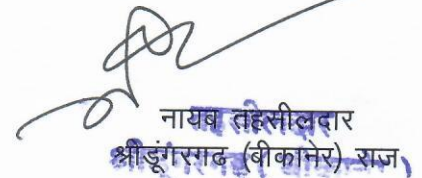 नायब तहसीलदार
श्रीडूंगरगढ (बीकानेर) राज.